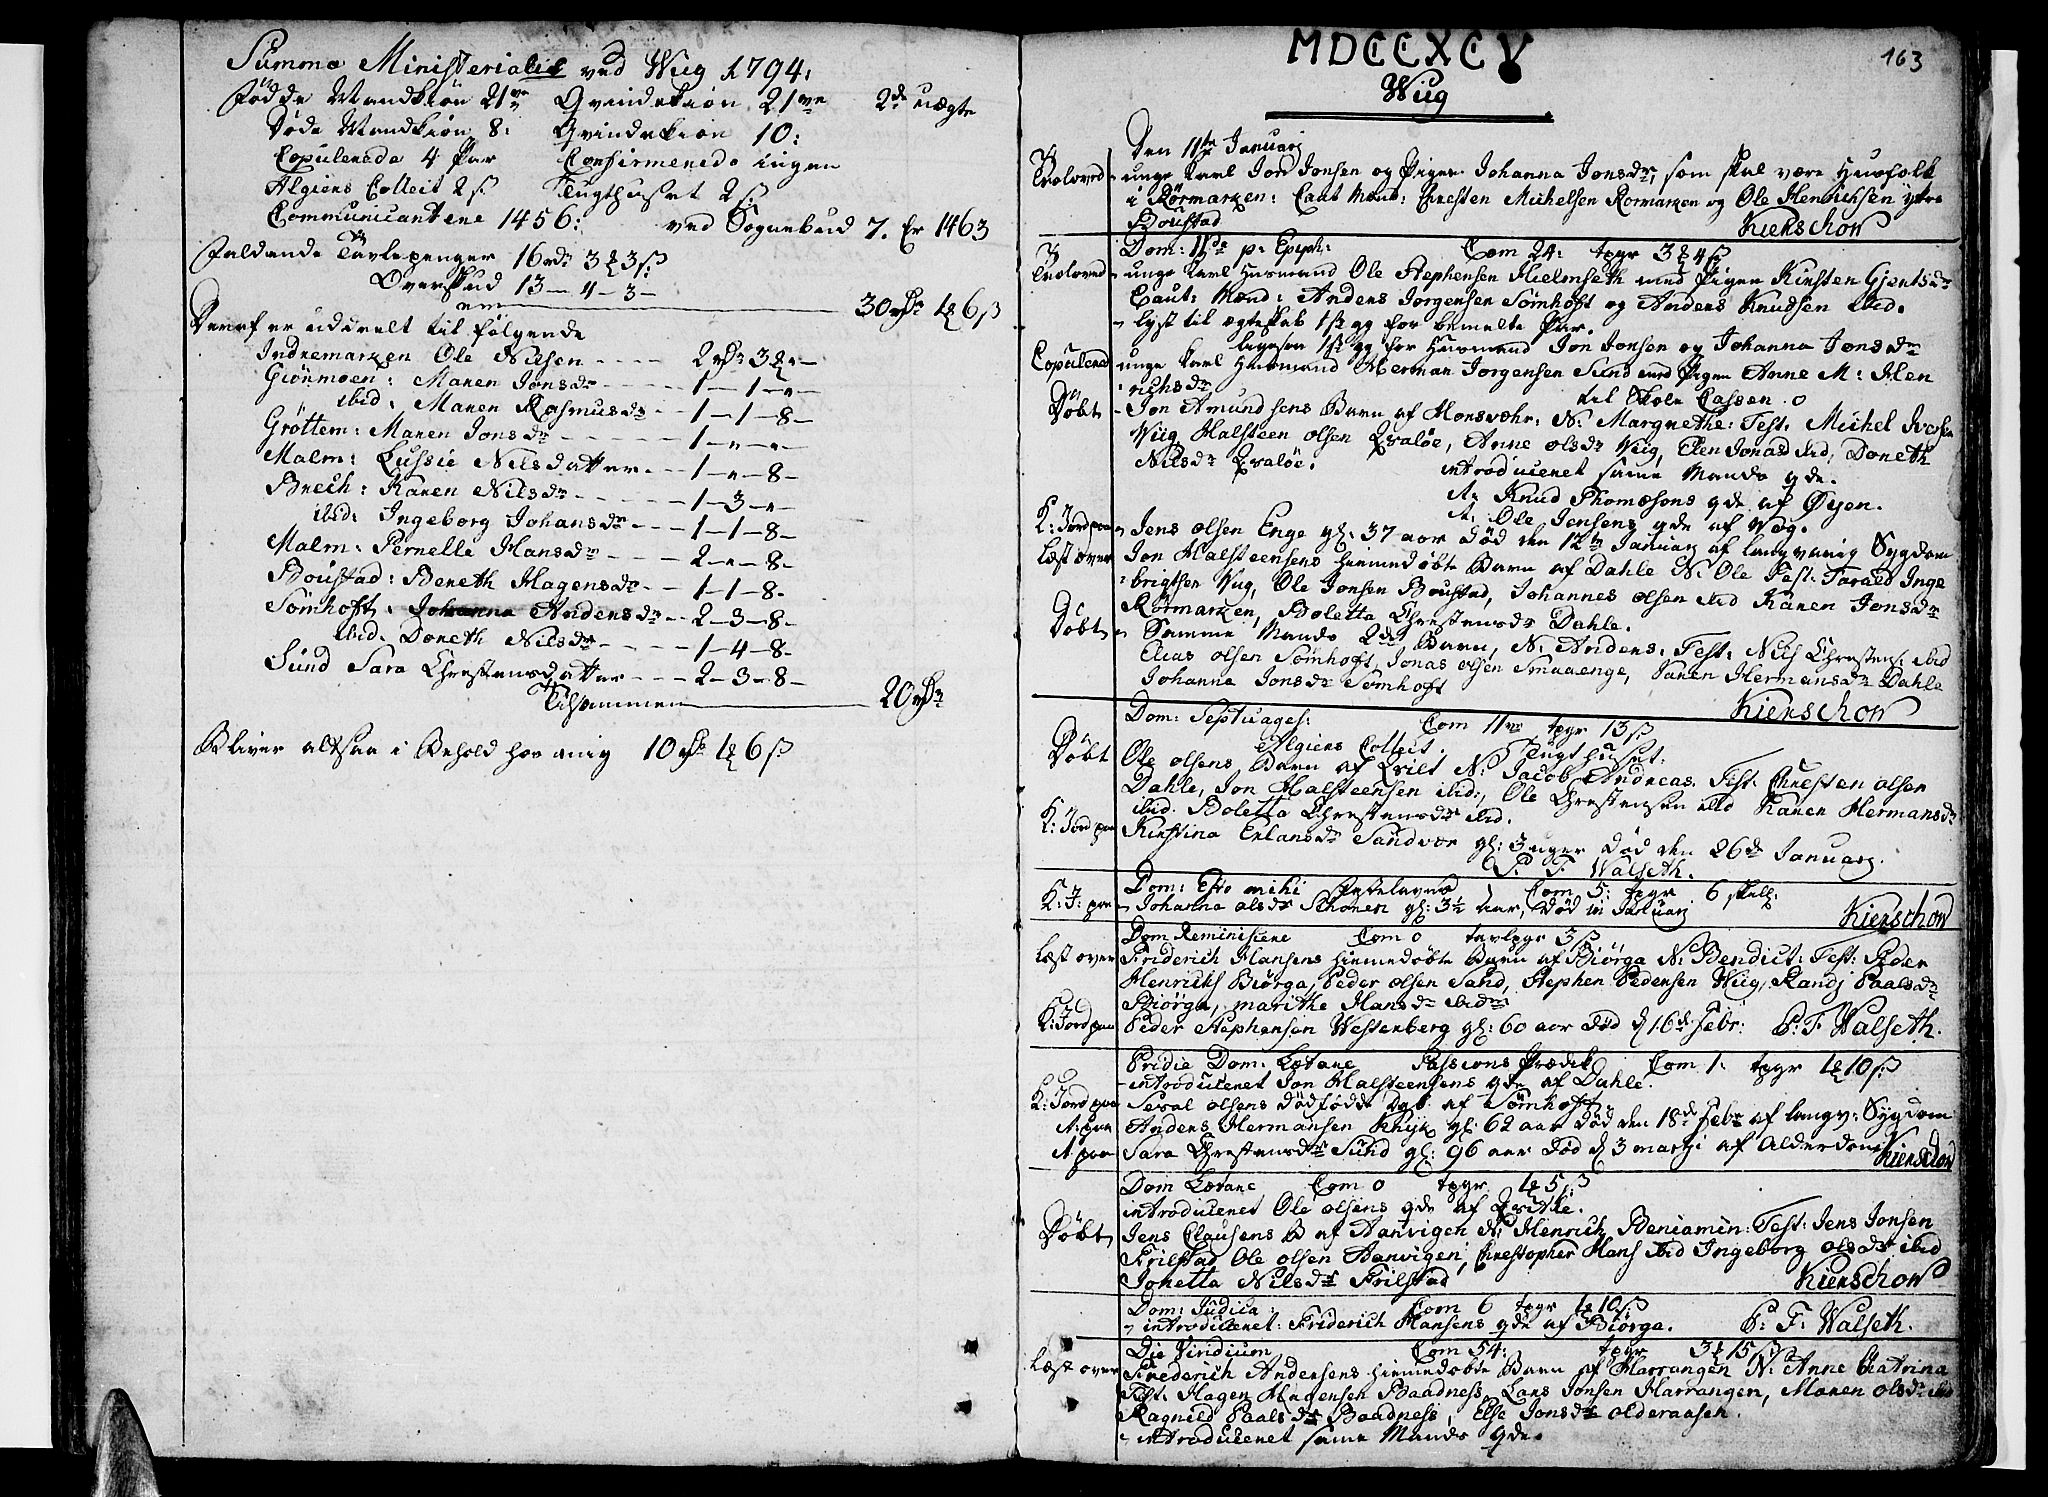 Summa Ministerialis ved Wiig 1794:
Fødde Mandkiøn 21ve Qvindekiøn 21ve 2de uægte
Døde Mandkiøn 8: Qvindekiøn 10:
Copulerede 4 Par Confirmerede ingen
Algiers Collect 2 ß Tugthuset 2 ß
Communicanterne 1456: ved Sognebud 7. Er 1463
Faldende Tavlepenger 16 rdr 3 3 ß
Overskud 13 - 4 - 3 -
30 rdr 1 6 ß
Deraf er uddeelt til følgende
Indremarken Ole Nilsen - - - - 2 rdr 3 " -
Grönmoen: Maren Jonsdr - - - 1 - 1 - " -
ibid: Maren Rasmusdr - - 1 - 1 - 8 -
Grøttem: Maren Jonsdr - - - - 1 - " - " -
Malm: Lussie Nilsdatter - - 1 - " - 8 -
Brech: Karen Nilsdr - - - - 1 - 3 - " -
ibid: Ingeborg Johansdr - - - 1 - 1 - 8 -
Malm: Pernelle Hansdr - - - - 2 - " - 8 -
Boustad: Bereth Hagensdr - - 1 - 1 - 8 -
Sömhoft: Johanna Andersdr - - 2 - 3 - 8 -
ibid. Doreth Nilsdr - - - - - 1 - 4 - 8 -
Sund Sara Chrestensdatter - - - 2 - 3 - 8 -
Tilsammen 20 rdr
Bliver altsaa i Behold hos mig 10 rdr 1 6 ß
163
MDCCXCV
Wiig
Den 11te Januarj
Trolovede unge Karl Jon Jonsen og Pigen Johanna Jonsdr, som skal være Huusfolk
i Rörmarken: Caut Mænd: Chresten Michelsen Rormarken og Ole Henrichsen ytre
Boustad Kierschow
Dom: IIda p: Epiph: Com 24: tpgr 3 4 ß
Trolovede unge Karl Huusmand Ole Stephensen Hielmseth med Pigen Kirsten Gjertsdr
Caut: Mænd: Anders Jorgensen Sömhoft og Anders Knudsen ibid.
- lyst til ægteskab 1ste gg for bemelte Par.
ligesaa 1ste gg for Huusmand Jon Jonsen og Johanna Jonsdr
Copulerede unge Karl Huusmand Herman Jorgensen Sund med Pigen Anne M: Hen
richsdr til Skole Cassen 0
Døbt - Jon Amundsens Barn af Horsvæhr: N: Margrethe: Test: Michel Iversen
Wiig, Halsteen olsen Qvaløe, Anne olsdr Wiig, Elen Jonasd ibid, Doreth
Nilsdr Qvaløe. introduceret samme Mands qde.
It: Knud Thomesons qde af Øyen.
It: Ole Jensens qde af Wæg.
K: Jord paa - Jens olsen Enge gl: 37 aar død den 12te Januarj af langvarig Sygdom
Læst over Jon Halsteensens hiemedøbte Barn af Dahle N: Ole Test: Tarald Inge
brigtsen Wiig, Ole Jonsen Boustad, Johannes olsen ibid Karen Jonsdr
Rörmarken, Boletta Chrestensdr Dahle.
Døbt - Samme Mands 2det Barn, N: Anders: Test: Nils Chrestens: ibid
Elias olsen Sömhoft, Jonas olsen Smaaenge, Maren Hermansdr Dahle
Johanna Jonsdr Sömhoft Kierschow
Dom: Septuages: Com 11ve tpgr 13 ß
Algiers Collect. Tugthuset:
Døbt Ole olsens Barn af Qvilt N: Jacob Andreas. Test: Chresten olsen
Dahle, Jon Halsteensen ibid:, Ole Chrestensen ibid Karen Hermansdr
ibid. Boletta Chrestensdr ibid.
K: Jord paa Kirstina Erlansdr Sandvær gl: 3 uger død den 26de Januarj.
P. F. Walseth.
Dom: Esto mihi Com 5: tpgr 6 skill:
K: J: paa - Johanna olsdr Schonen gl: 3½ aar, død in Januarj Kierschow
Dom Reminiscere Com 0 tavlpgr 3 ß
Læst over Friderich Hansens hiemedøbte Barn af Biörga N: Bendict: Test: Peder
Henrichs Biörga, Peder olsen Sand, Stephen Pedersen Wiig, Randj Paalsdr
Biörga, marithe Hansdr ibidm
K: Jord paa Peder Stephensen Westenberg gl: 60 aar død d 16de Febr: P: F. Walseth.
Pridie Dom: Lætare Passions Prædik Com 1. tpgr 1 10 ß:
- introduceret Jon Halsteensens qde af Dahle.
K: Jord paa Sexal olsens dödfödde Dgb. af Sömhoft.
It: paa Anders Hermansen Rhyk gl: 62 aar død den 18de Febr af langv: Sygdom
It paa Sara Chrestensdr Sund gl: 96 aar død d 3 martj af Alderdom Kierschow
Dom Lætare Com 0 tpgr 1 5 ß
introduceret Ole olsens qde af Qvilte.
Døbt Jens Clausens B af Aarvigen N: Henrich Beniamin: Test: Jens Jonsen
Frilstad Ole olsen Aarvigen, Chrestopher Hans ibid Ingeborg olsdr ibid
Jonetta Nilsdr Frilstad Kierschow
Dom: Judica: Com 6 tpgr 1 10 ß
- introduceret: Friderich Hansens qde af Biörga. P: F. Walseth.
Die Viridium Com 54: tpgr 3 15 ß
Læst over Frederich Andersens hiemedøbte Barn af Harrangen N: Anne Catrina
Test: Hagen Hagensen Baadness, Lars Jonsen Harrangen, Maren olsdr ibid
Ragnild Paalsdr Baadness, Else Jonsdr olderaasen.
- introduceret samme Mands qde.